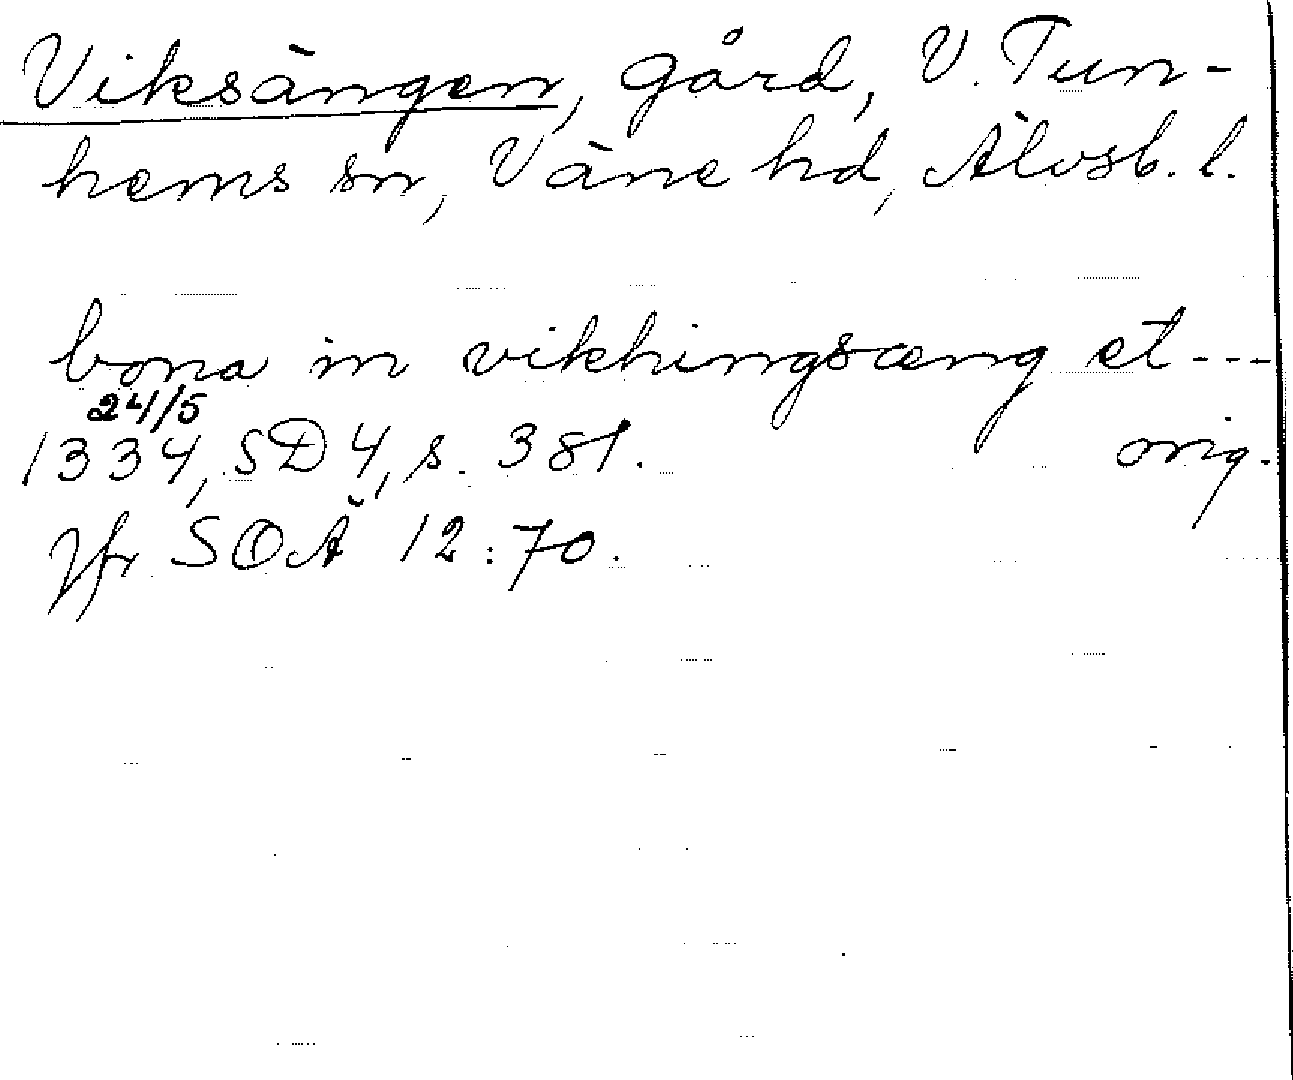 Viksängen, gård, V. Tun-
hems sn, Väne hd, Älvsb. l.
bona in vikhingsæng et ---
24/5
1334, SD 4, s. 381. orig.
Jfr SOÄ 12:70.